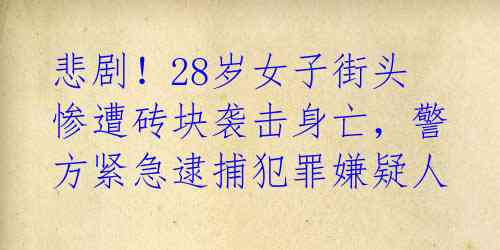 悲剧！28岁女子街头
惨遭砖块袭击身亡，警
方紧急逮捕犯罪嫌疑人